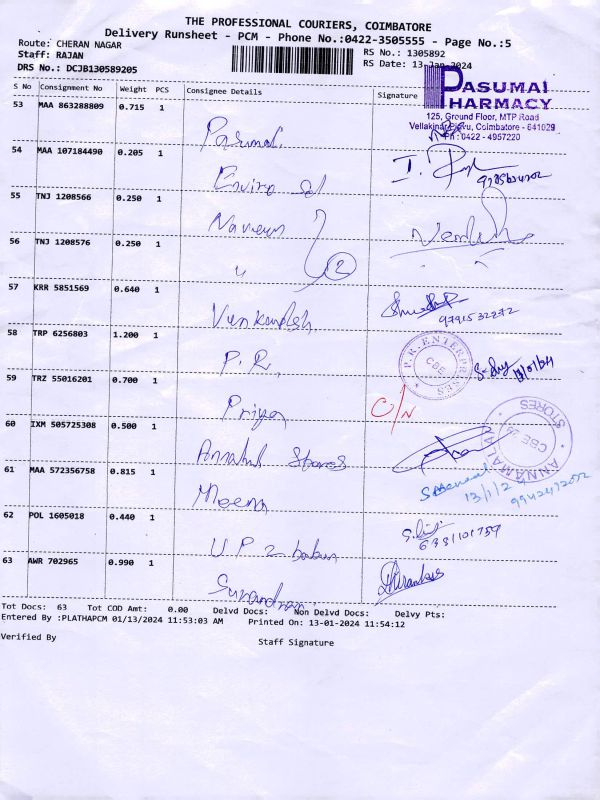 THE PROFESSIONAL COURIERS, COIMBATORE
Delivery Runsheet - PCM - Phone No.:0422-3505555 - Page No.:5
Route: CHERAN NAGAR
Staff: RAJAN
DRS No.: DCJB130589205
RS No.: 1305892
RS Date: 13-Jan-2024
S No Consignment No Weight PCS Consignee Details Signature
PASUMAI
PHARMACY
125, Ground Floor, MTP Road
Vellakinar Pirivu, Coimbatore - 641029
Ph : 0422 - 4957220
53 MAA 863288809 0.715 1
54 MAA 107184490 0.205 1 Enviro
55 TNJ 1208566 0.250 1 Naveen
56 TNJ 1208576 0.250 1 " 2
57 KRR 5851569 0.640 1
9791532272
58 TRP 6256803 1.200 1 P.R,
P.R. ENTERPRISES
CBE
59 TRZ 55016201 0.700 1 Priya
60 IXM 505725308 0.500 1 Stores
ANNAMALAI STORES
CBE
61 MAA 572356758 0.815 1 Meena
62 POL 1605018 0.440 1 U P 2 babu
63 AWR 702965 0.990 1
Tot Docs: 63 Tot COD Amt: 0.00 Delvd Docs: Non Delvd Docs: Delvy Pts:
Entered By :PLATHAPCM 01/13/2024 11:53:03 AM Printed On: 13-01-2024 11:54:12
Verified By
Staff Signature